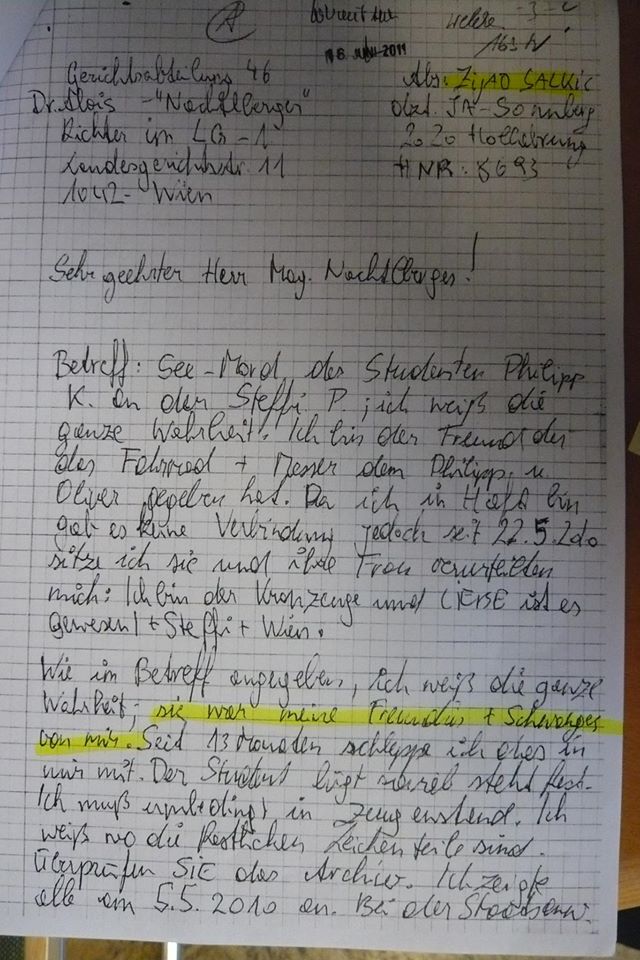 A
welche
18. JUNI 2011
Abs IV
Gerichtsabteilung 46
Abs: Zijad SALKIC
Dr. Alois - "Nachtlberger"
dzt. JA-Sonnberg
Richter im LG-1
2020 Hollabrunn
Landesgerichtsstr. 11
HNR: 8693
1042- Wien
Sehr geehrter Herr Mag. Nachtlberger!
Betreff: See-Mord, des Studenten Philipp
K. an der Steffi P.; ich weiß die
ganze Wahrheit. Ich bin der Freund der
das Fahrrad + Messer dem Philipp u.
Oliver gegeben hat. Da ich in Haft bin
gab es keine Verbindung jedoch seit 22.5.2010
sitze ich sie und ihre Frau verurteilten
mich: Ich bin der Kronzeuge und LIEBE ist es
gewesen! + Steffi + Wien.
Wie im Betreff angegeben, ich weiß die ganze
Wahrheit; sie war meine Freundin + Schwanger
von mir. Seid 13 Monaten schleppe ich das in
mir mit. Der Student lügt steht fest.
Ich muß unbedingt in Zeugenstand. Ich
weiß wo die Restlichen Leichenteile sind.
Überprüfen SIE das Archiv. Ich zeigte
alle am 5.5.2010 an. Bei der Staatsanw.